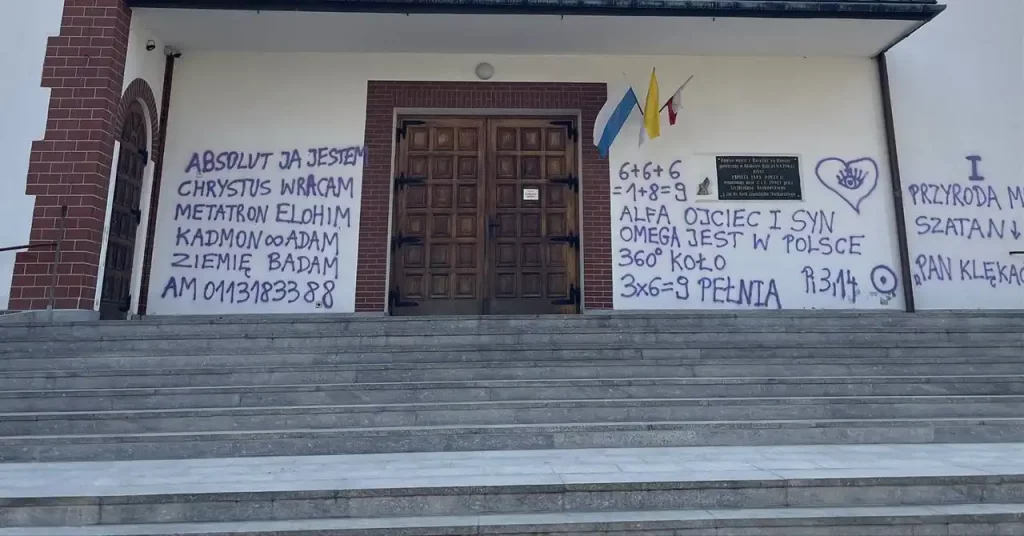 ABSOLUT JA JESTEM
CHRYSTUS WRACAM
METATRON ELOHIM
KADMON∞ADAM
ZIEMIĘ BADAM
AM 0113183388
6+6+6
=1+8=9
ALFA OJCIEC I SYN
OMEGA JEST W POLSCE
360° KOŁO
3x6=9 PEŁNIA
R3,14
I
PRZYRODA M
SZATAN↓
„PAN KLĘKA